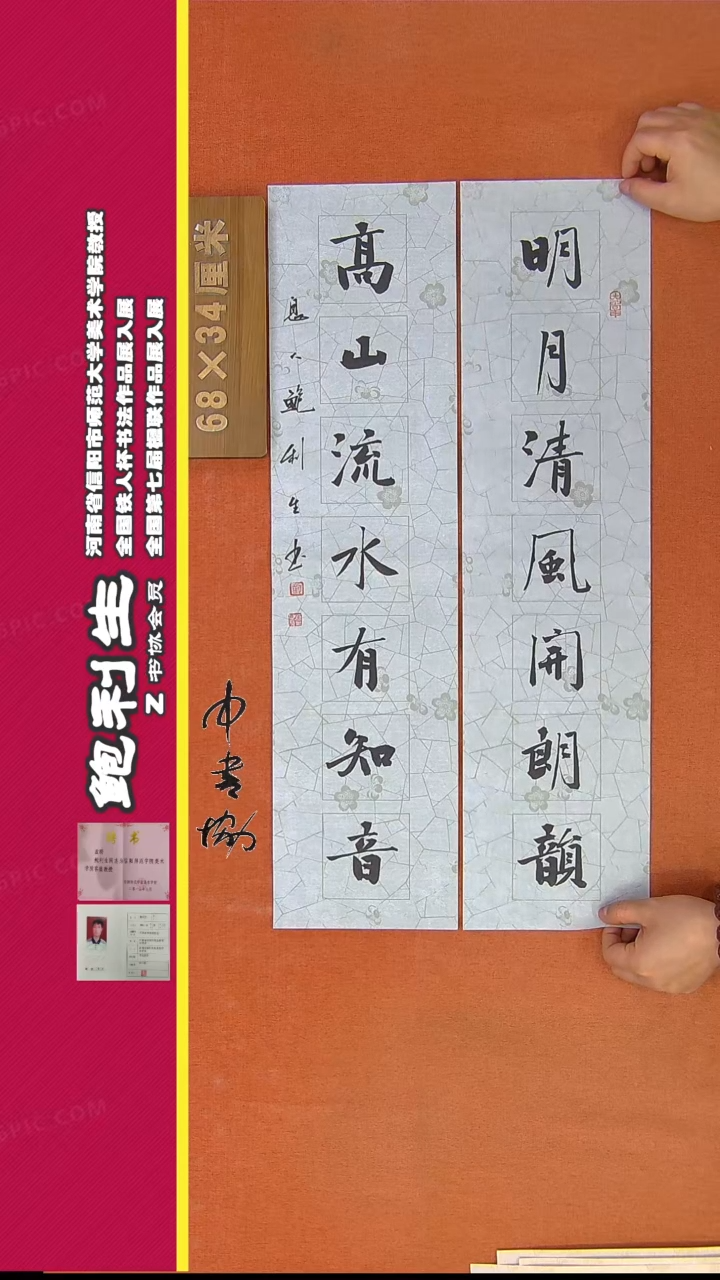 明月清風開朗韻
高山流水有知音
息人鲍利生书
68×34厘米
河南省信阳市师范大学美术学院教授
全国铁人杯书法作品展入展
全国第七届楹联作品展入展
鲍利生
Z书协会员
中书协